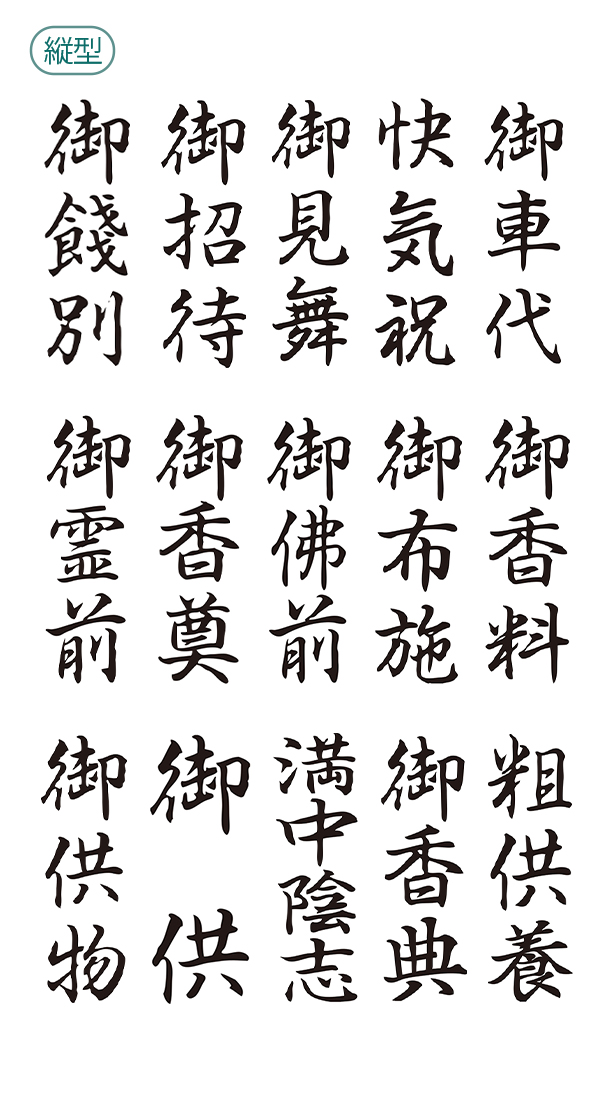 縦型
御車代
快気祝
御見舞
御招待
御餞別
御香料
御布施
御佛前
御香奠
御霊前
粗供養
御香典
満中陰志
御供
御供物